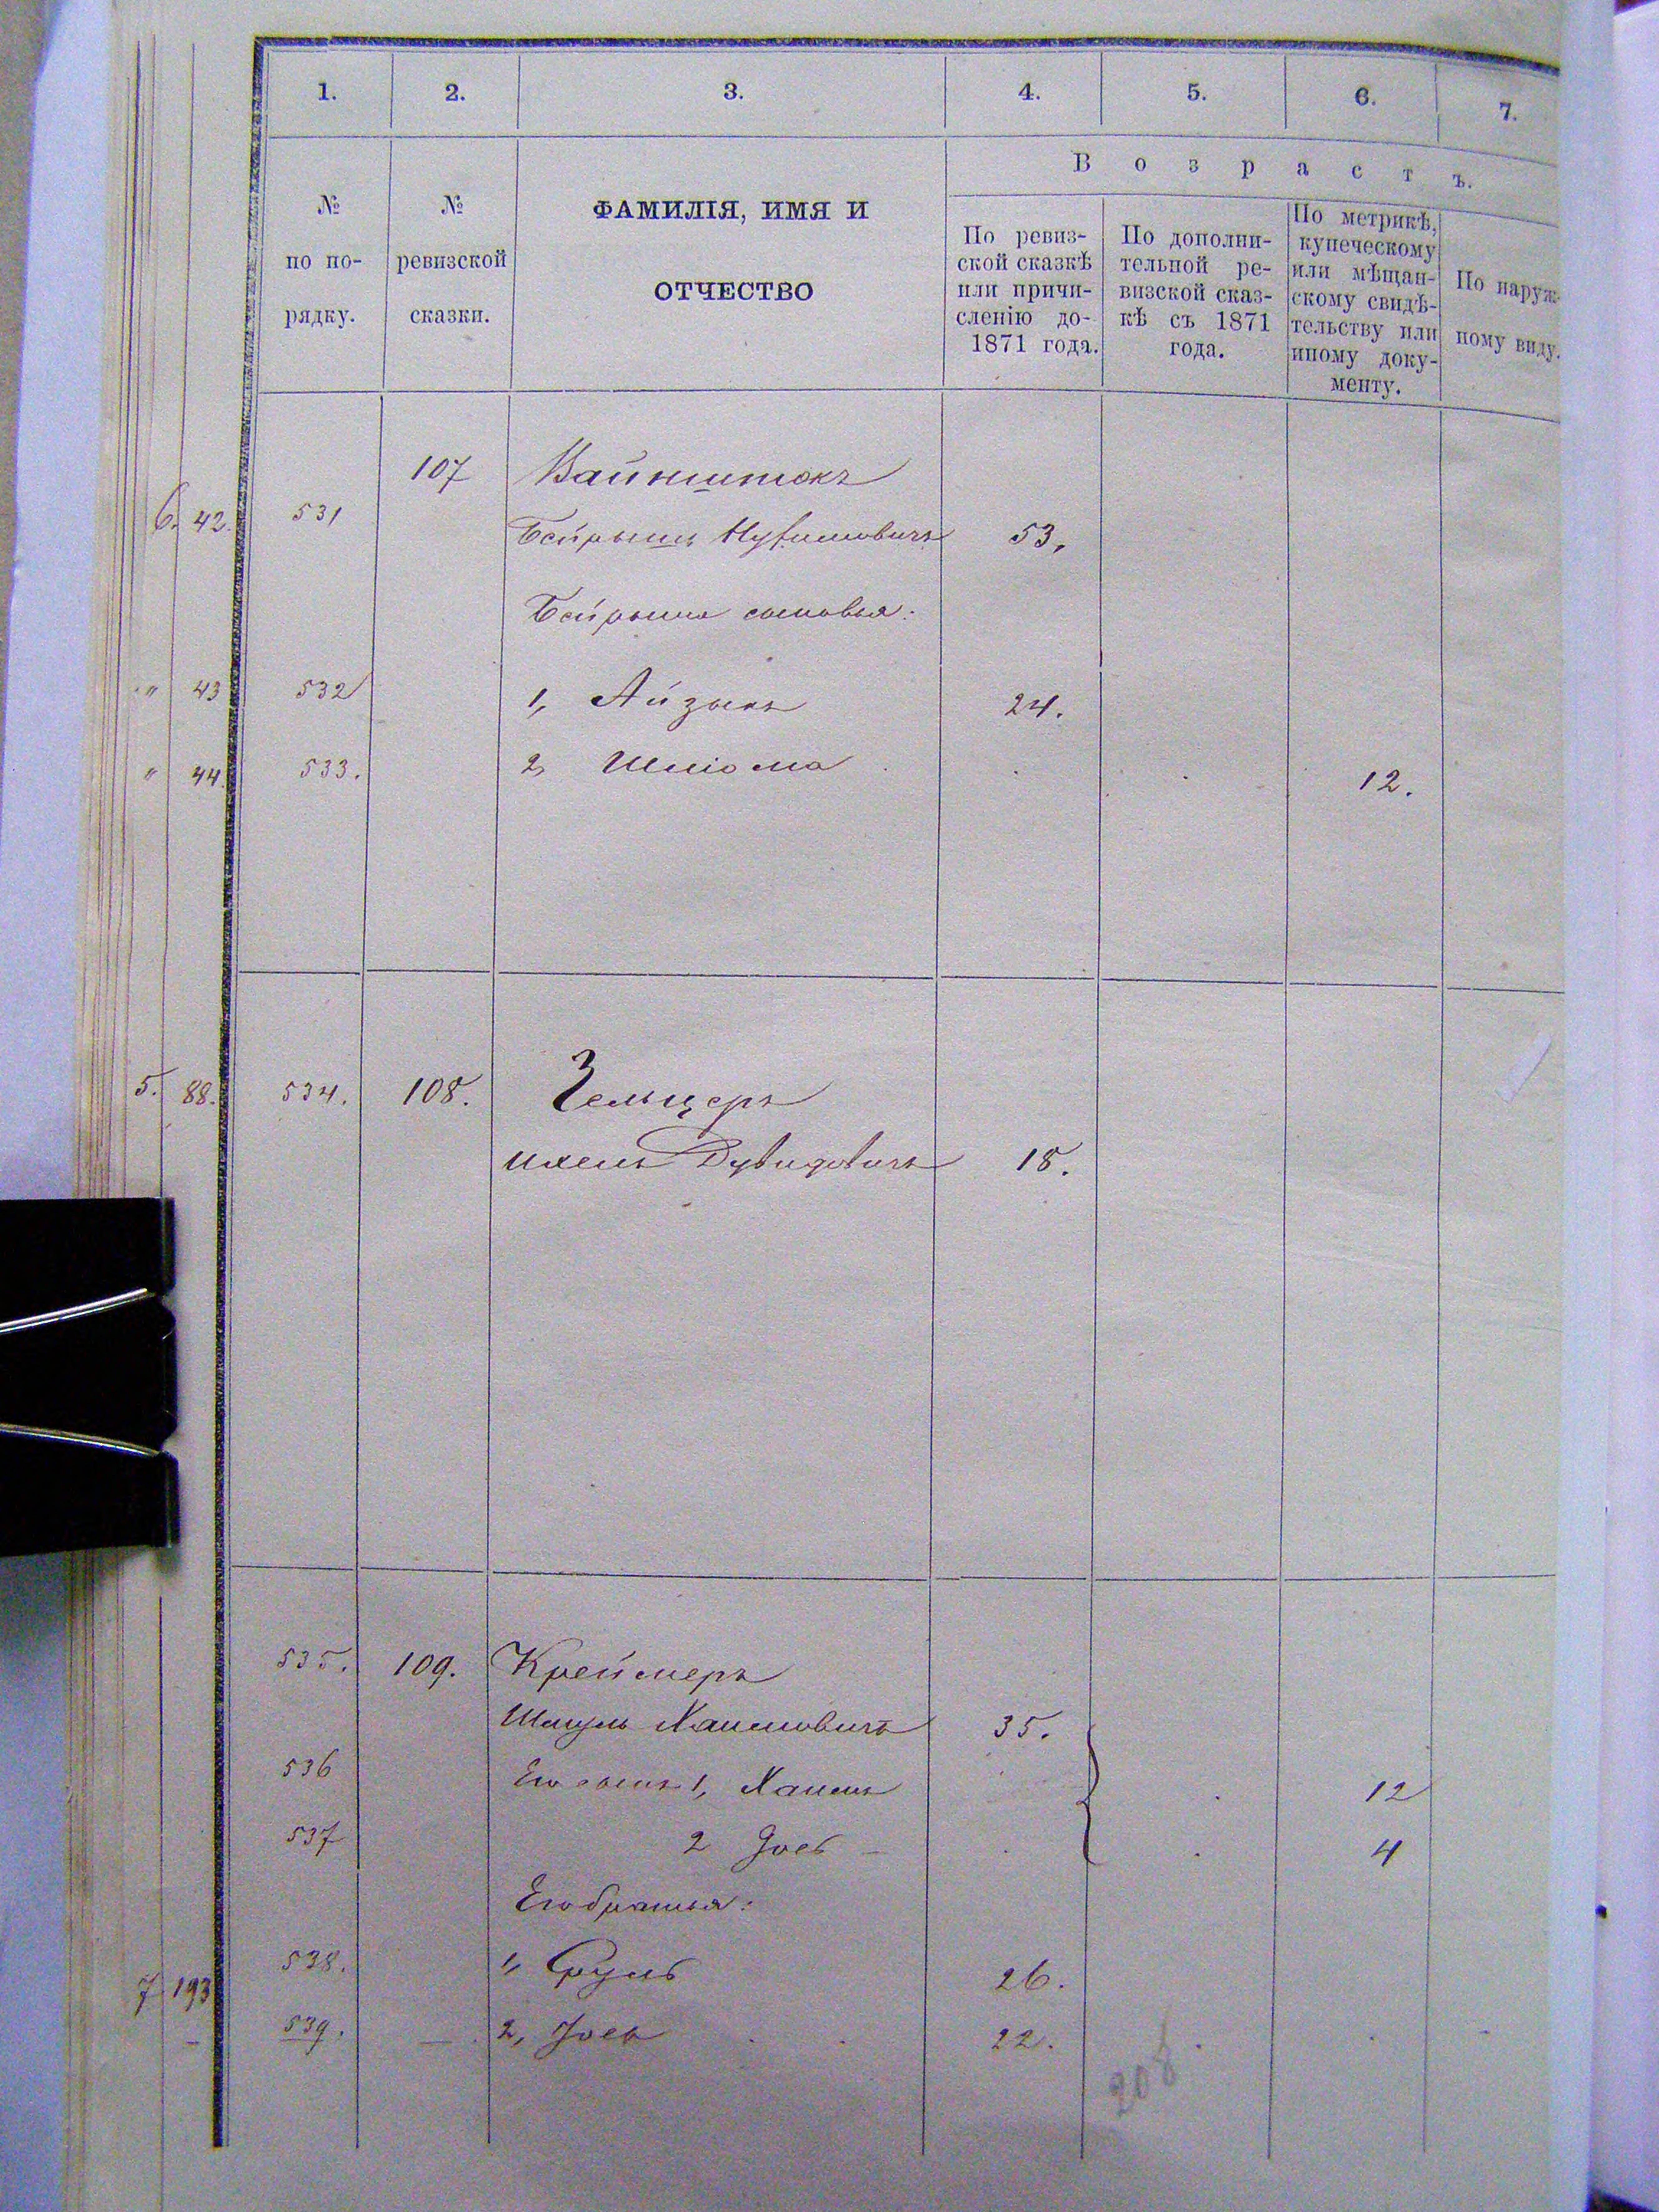 1. 2. 3. 4. 5. 6. 7.
Возрастъ.
№ по по-рядку.
№ ревизской сказки.
ФАМИЛІЯ, ИМЯ И
ОТЧЕСТВО
По ревиз-
ской сказкѣ
или причи-
сленію до-
1871 года.
По дополни-
тельной ре-
визской сказ-
кѣ съ 1871
года.
По метрикѣ,
купеческому
или мѣщан-
скому свидѣ-
тельству или
иному доку-
менту.
По наруж-
ному виду.
107 Вайнштокъ
6. 42. 531 Бейрышъ 53.
Бейрыша сыновья:
" 43 532 1, Айзыкъ 24.
" 44. 533. 2, Шліома 12.
5. 88. 534. 108. Зельцеръ
Ихель Дувидовичъ 18.
535. 109. Креймеръ
Шмуль Хаимовичъ 35.
536 Его сынъ 1, Хаимъ 12
537 2 Іосъ 4
Его братья:
7 193 538. 1, Сруль 26.
539. 2, Іось 22.
208